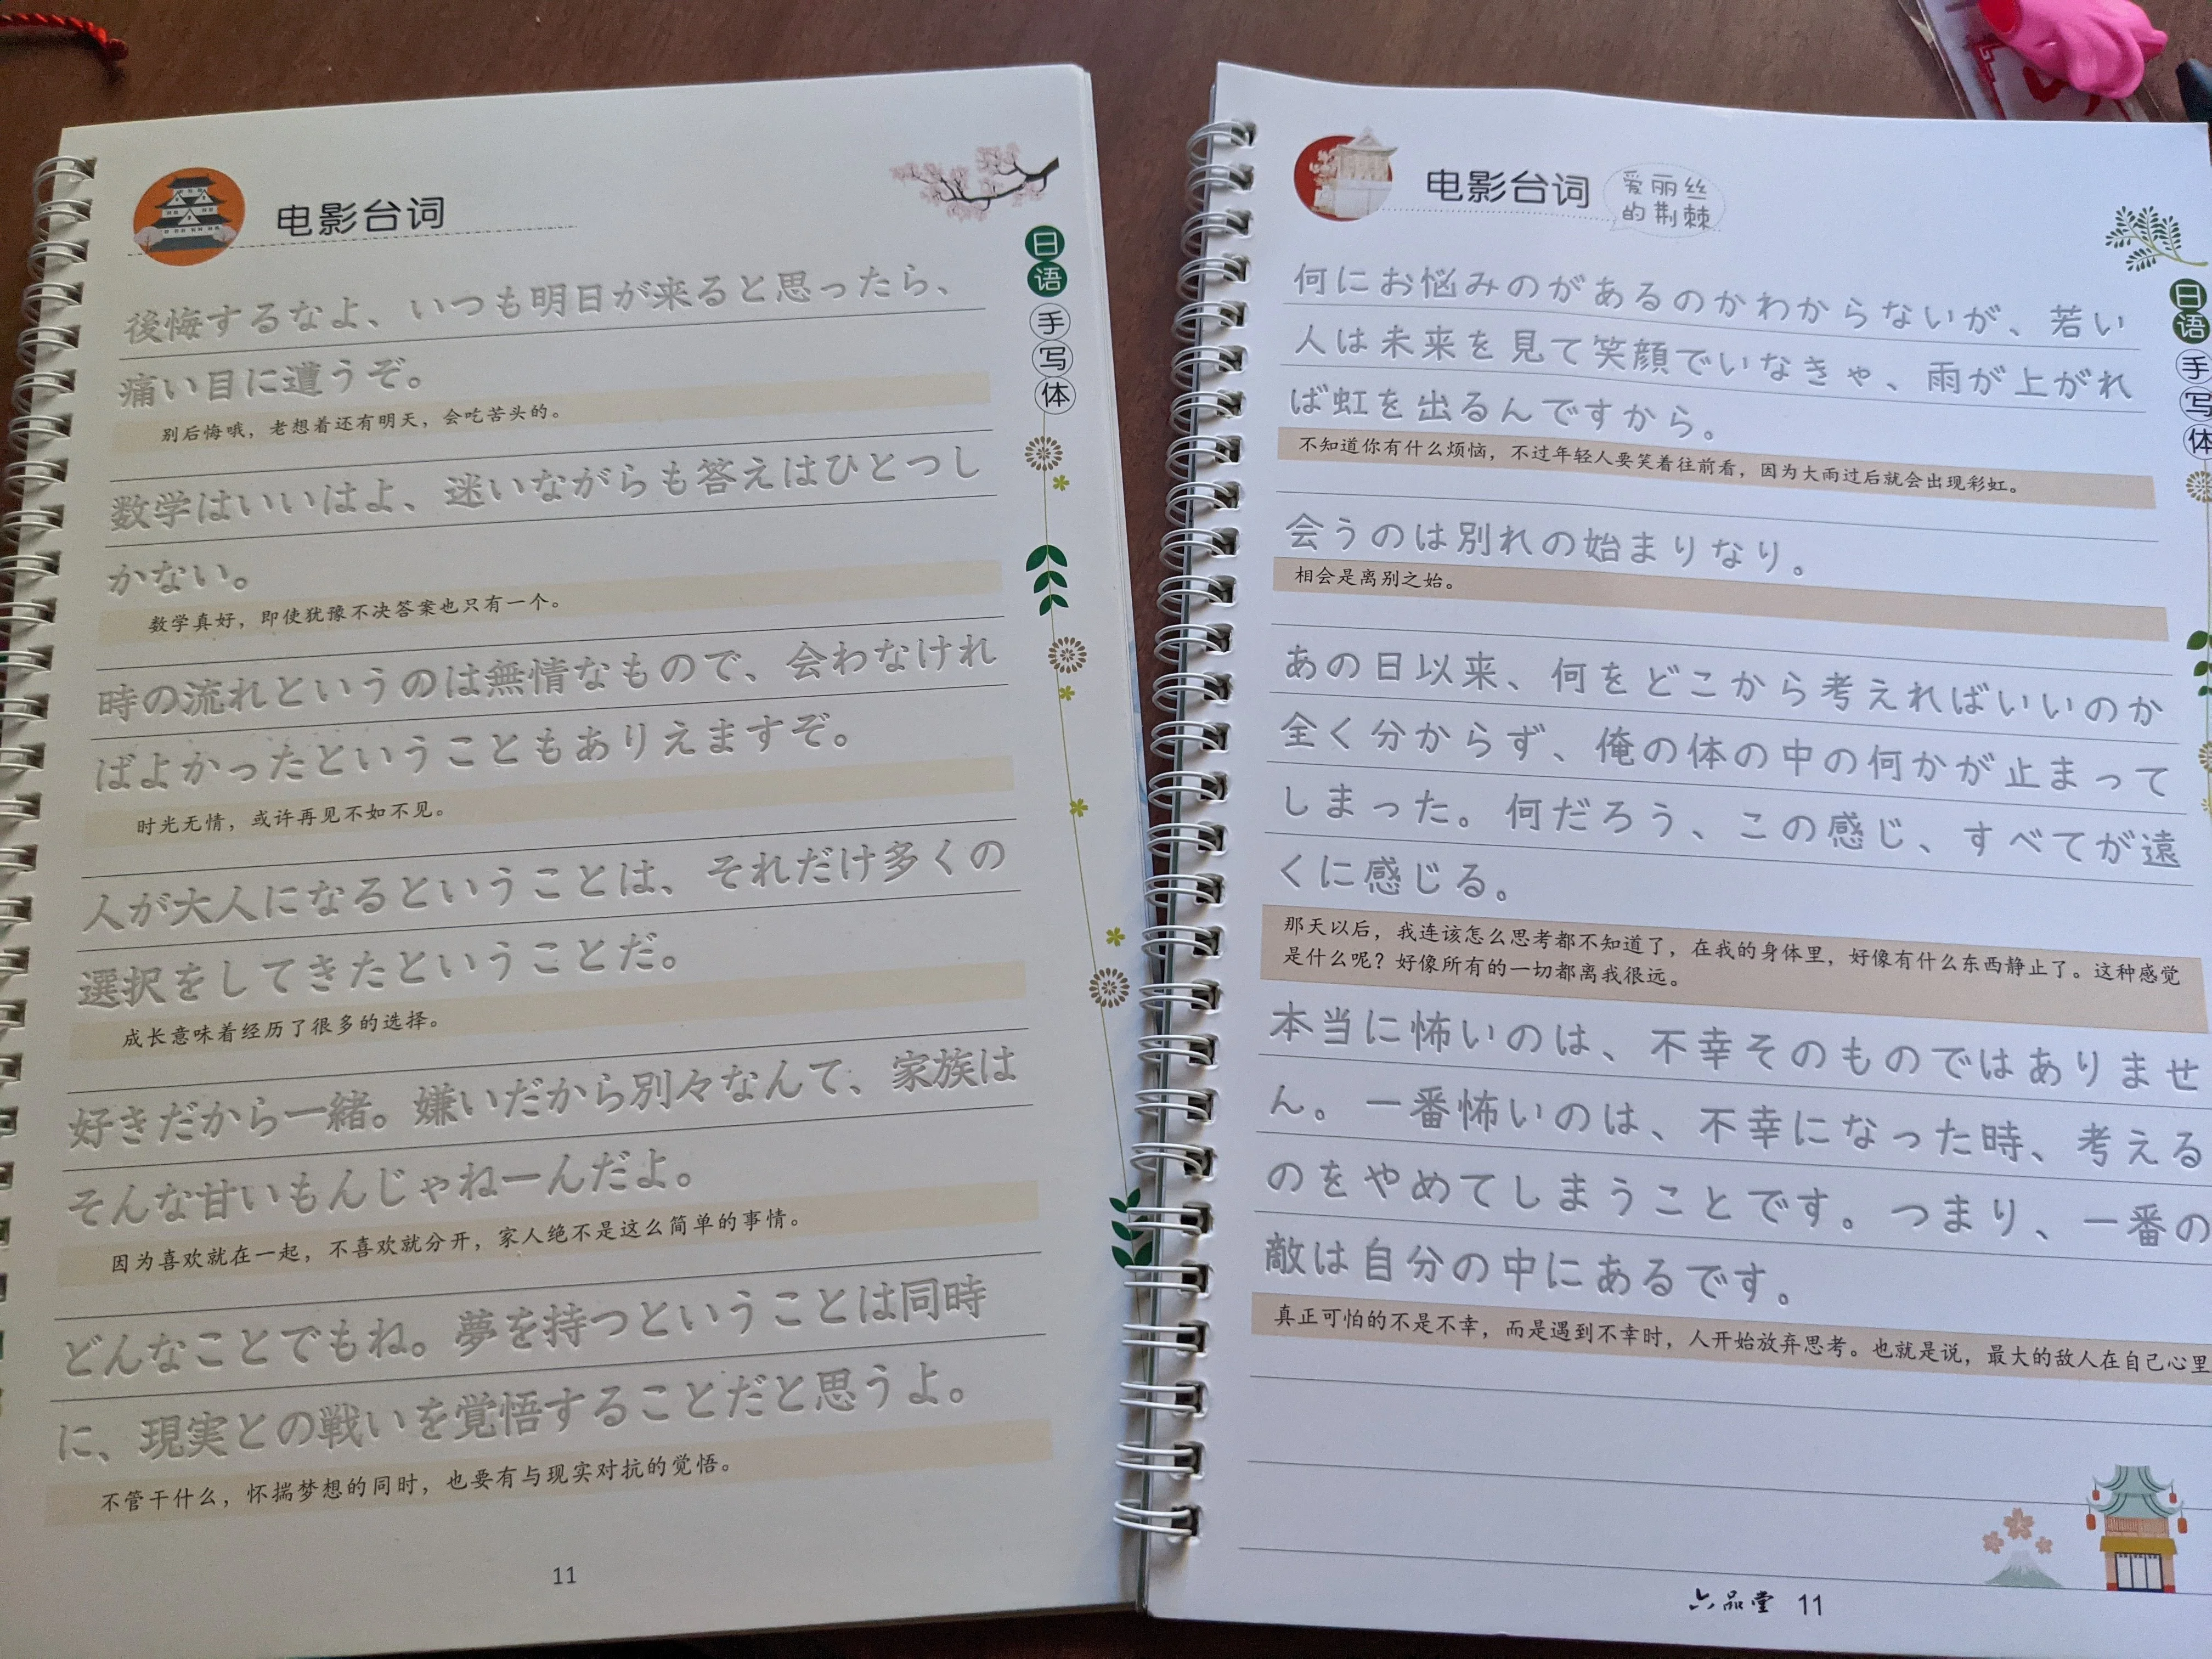 电影台词
後悔するなよ、いつも明日が来ると思ったら、
痛い目に遭うぞ。
别后悔哦，老想着还有明天，会吃苦头的。
数学はいいはよ、迷いながらも答えはひとつし
かない。
数学真好，即使犹豫不决答案也只有一个。
時の流れというのは無情なもので、会わなけれ
ばよかったということもありえますぞ。
时光无情，或许再见不如不见。
人が大人になるということは、それだけ多くの
選択をしてきたということだ。
成长意味着经历了很多的选择。
好きだから一緒。嫌いだから別々なんて、家族は
そんな甘いもんじゃねーんだよ。
因为喜欢就在一起，不喜欢就分开，家人绝不是这么简单的事情。
どんなことでもね。夢を持つということは同時
に、現実との戦いを覚悟することだと思うよ。
不管干什么，怀揣梦想的同时，也要有与现实对抗的觉悟。
11
日语手写体
电影台词
爱丽丝
的荆棘
何にお悩みのがあるのかわからないが、若い
人は未来を見て笑顔でいなきゃ、雨が上がれ
ば虹を出るんですから。
不知道你有什么烦恼，不过年轻人要笑着往前看，因为大雨过后就会出现彩虹。
会うのは別れの始まりなり。
相会是离别之始。
あの日以来、何をどこから考えればいいのか
全く分からず、俺の体の中の何かが止まって
しまった。何だろう、この感じ、すべてが遠
くに感じる。
那天以后，我连该怎么思考都不知道了，在我的身体里，好像有什么东西静止了。这种感觉
是什么呢？好像所有的一切都离我很远。
本当に怖いのは、不幸そのものではありませ
ん。一番怖いのは、不幸になった時、考える
のをやめてしまうことです。つまり、一番の
敵は自分の中にあるです。
真正可怕的不是不幸，而是遇到不幸时，人开始放弃思考。也就是说，最大的敌人在自己心里
六品堂 11
日语手写体